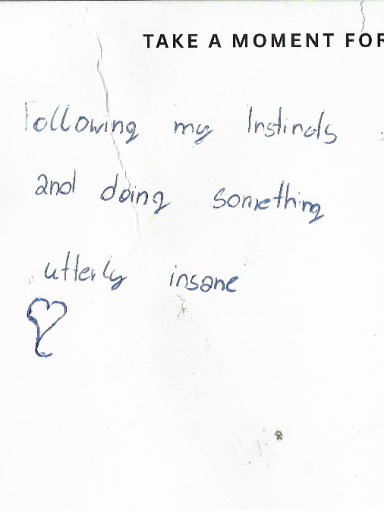 TAKE A MOMENT FOR
Following my Instincts
and doing something
utterly insane